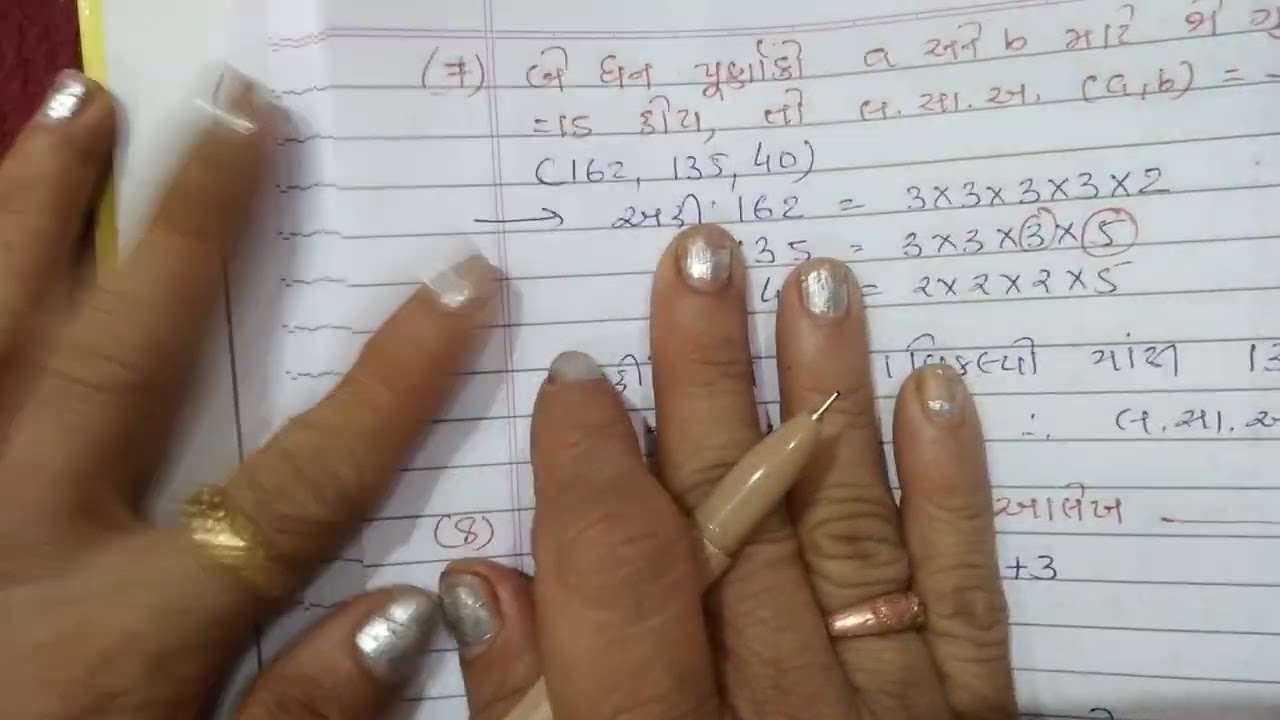 (૭) બે ધન પૂર્ણાંકો a અને b માટે
=15 હોય, તો લ.સા.અ. (a,b) =
(162, 135, 40)
→ અહીં 162 = 3×3×3×3×2
35 = 3×3×3×5
4 = 2×2×2×5
વિકલ્પો માંથી 13
∴ લ.સા.અ
(8) આલેખ
+3